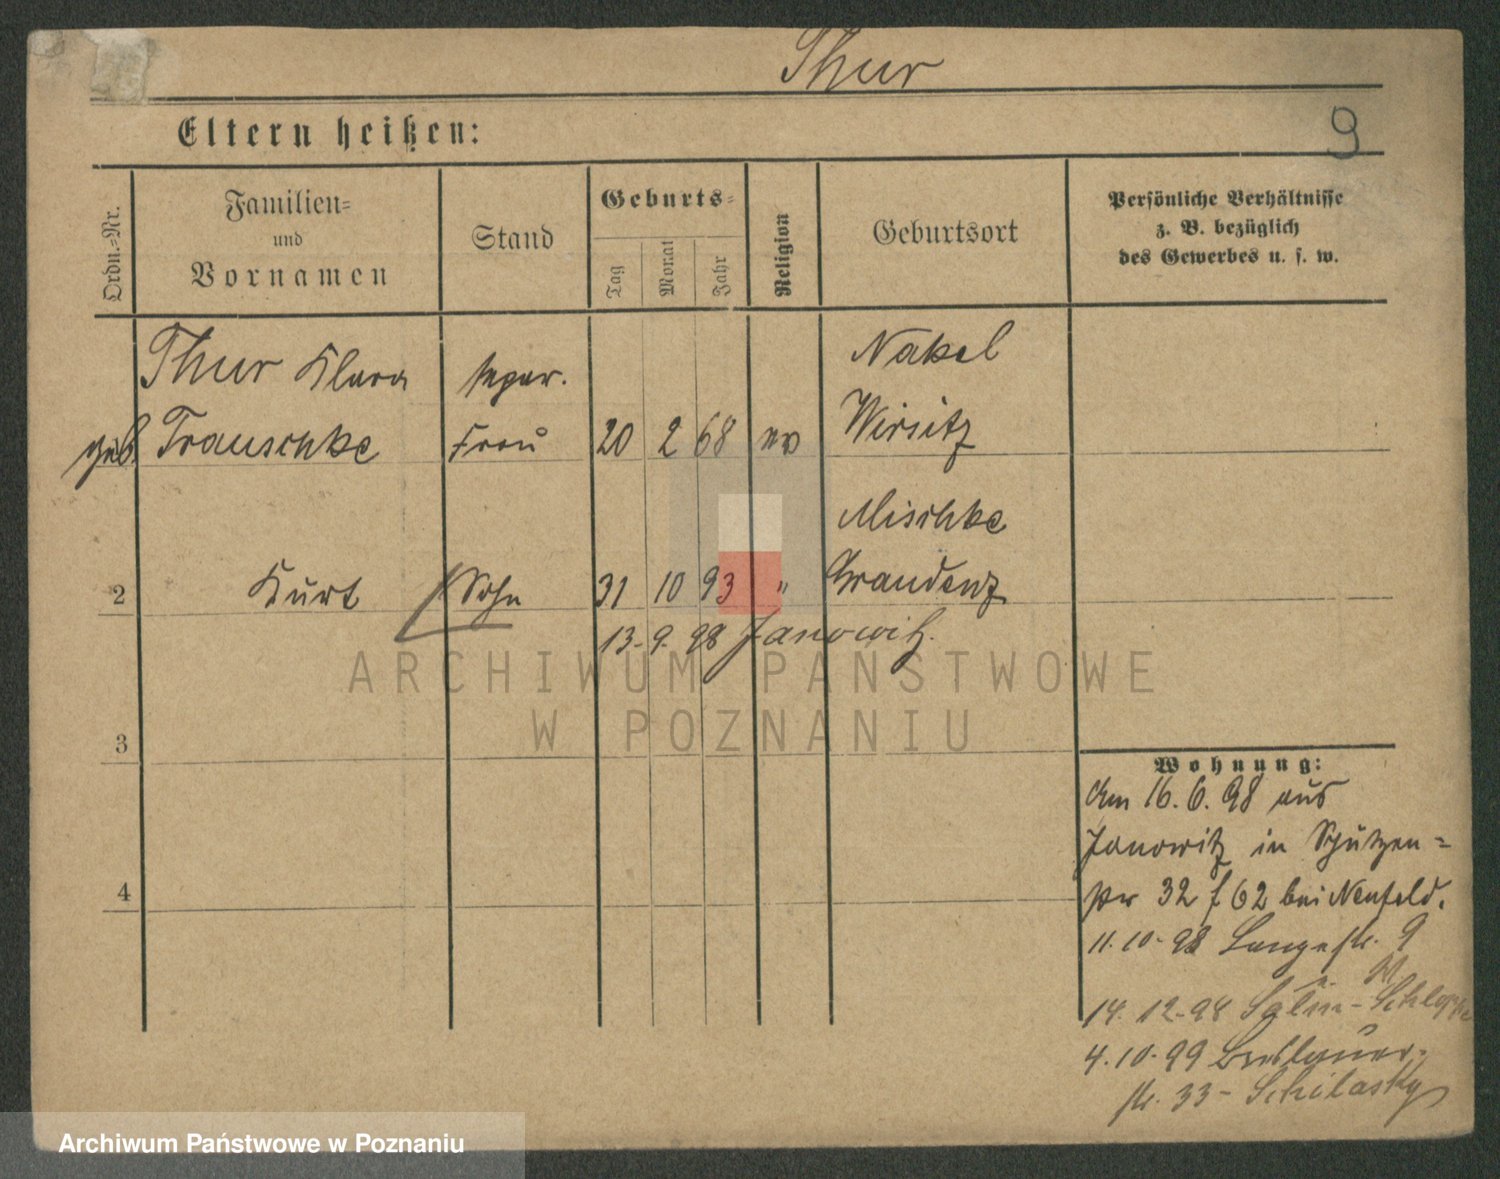 Thur
9
Eltern heißen:
Ordn.=Nr.
Familien=
und
Vornamen
Stand
Geburts=
Tag
Monat
Jahr
Religion
Geburtsort
Persönliche Verhältnisse
z. B. bezüglich
des Gewerbes u. s. w.
Thur Klara separ. Nakel
geb. Trauschke Frau 20 2 68 ev Wirsitz
Mischke
2 Kurt Sohn 31 10 93 " Graudenz
13.9.98 Janowitz.
ARCHIWUM PAŃSTWOWE
W POZNANIU
3
4
Wohnung:
Am 16.6.98 aus
Janowitz in Schützen=
str 32 f 62 bei Neufeld.
11.10.98 Langestr. 9
14.12.98
4.10.99 Breslauer-
str. 33- Schilasky
Archiwum Państwowe w Poznaniu